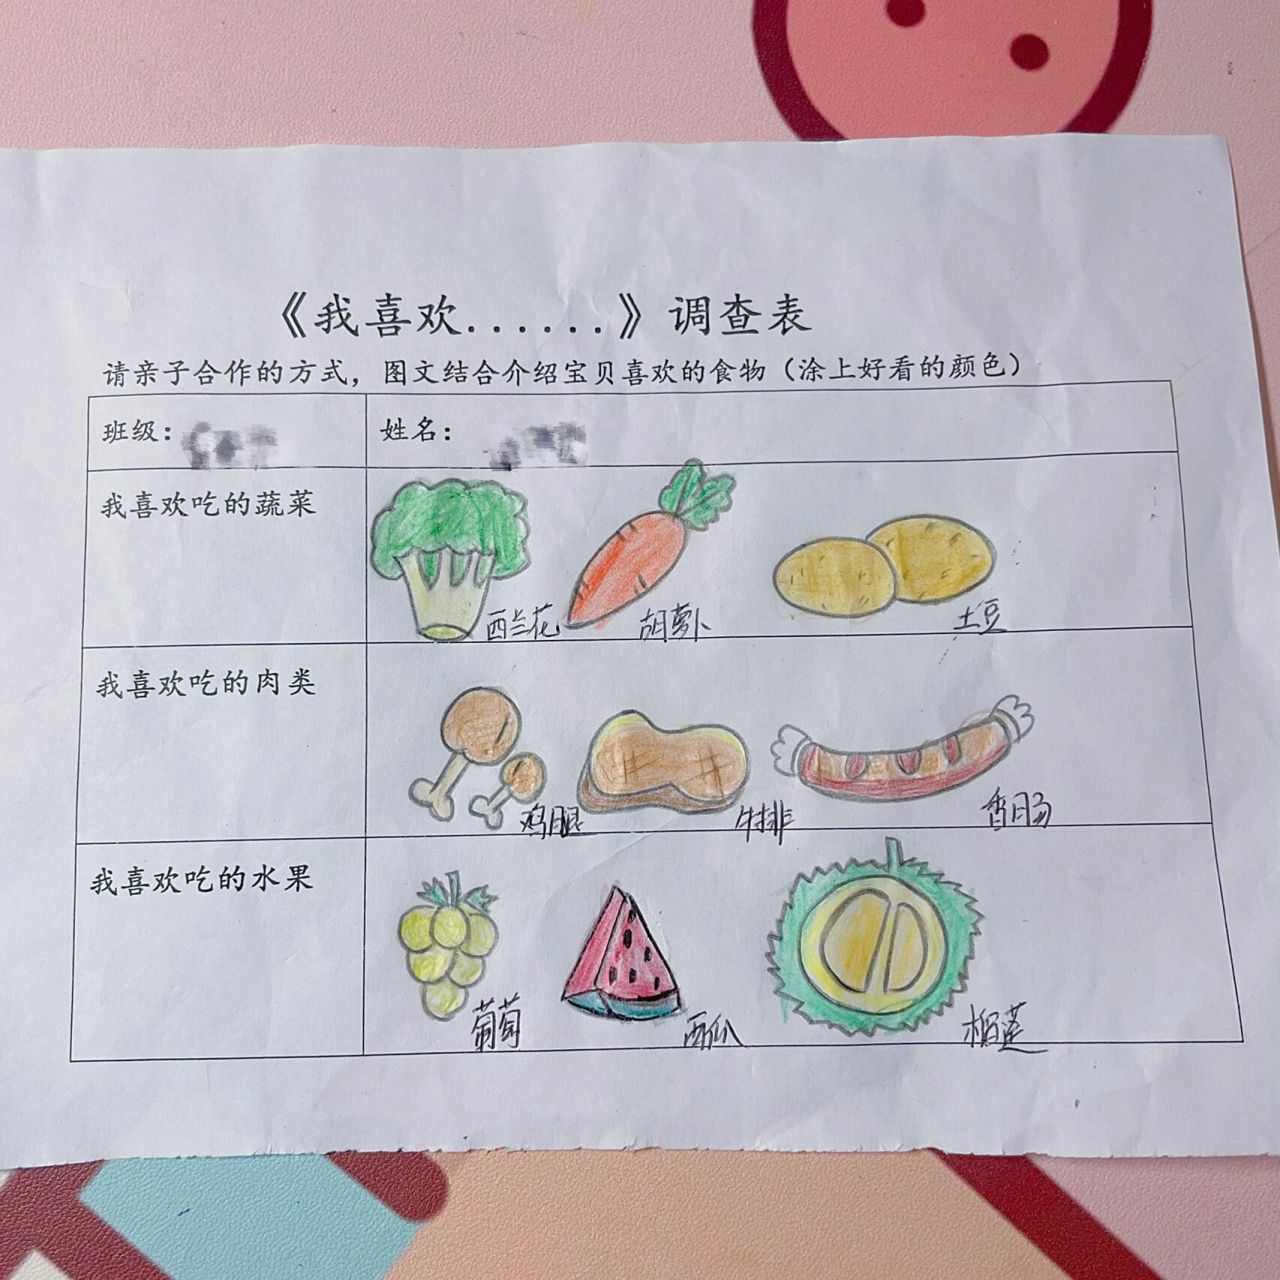 《我喜欢......》调查表
请亲子合作的方式，图文结合介绍宝贝喜欢的食物（涂上好看的颜色）
班级： 姓名：
我喜欢吃的蔬菜
西兰花 胡萝卜 土豆
我喜欢吃的肉类
鸡腿 牛排 香肠
我喜欢吃的水果
葡萄 西瓜 榴莲